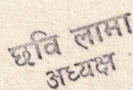 छवि लामा
अध्यक्ष